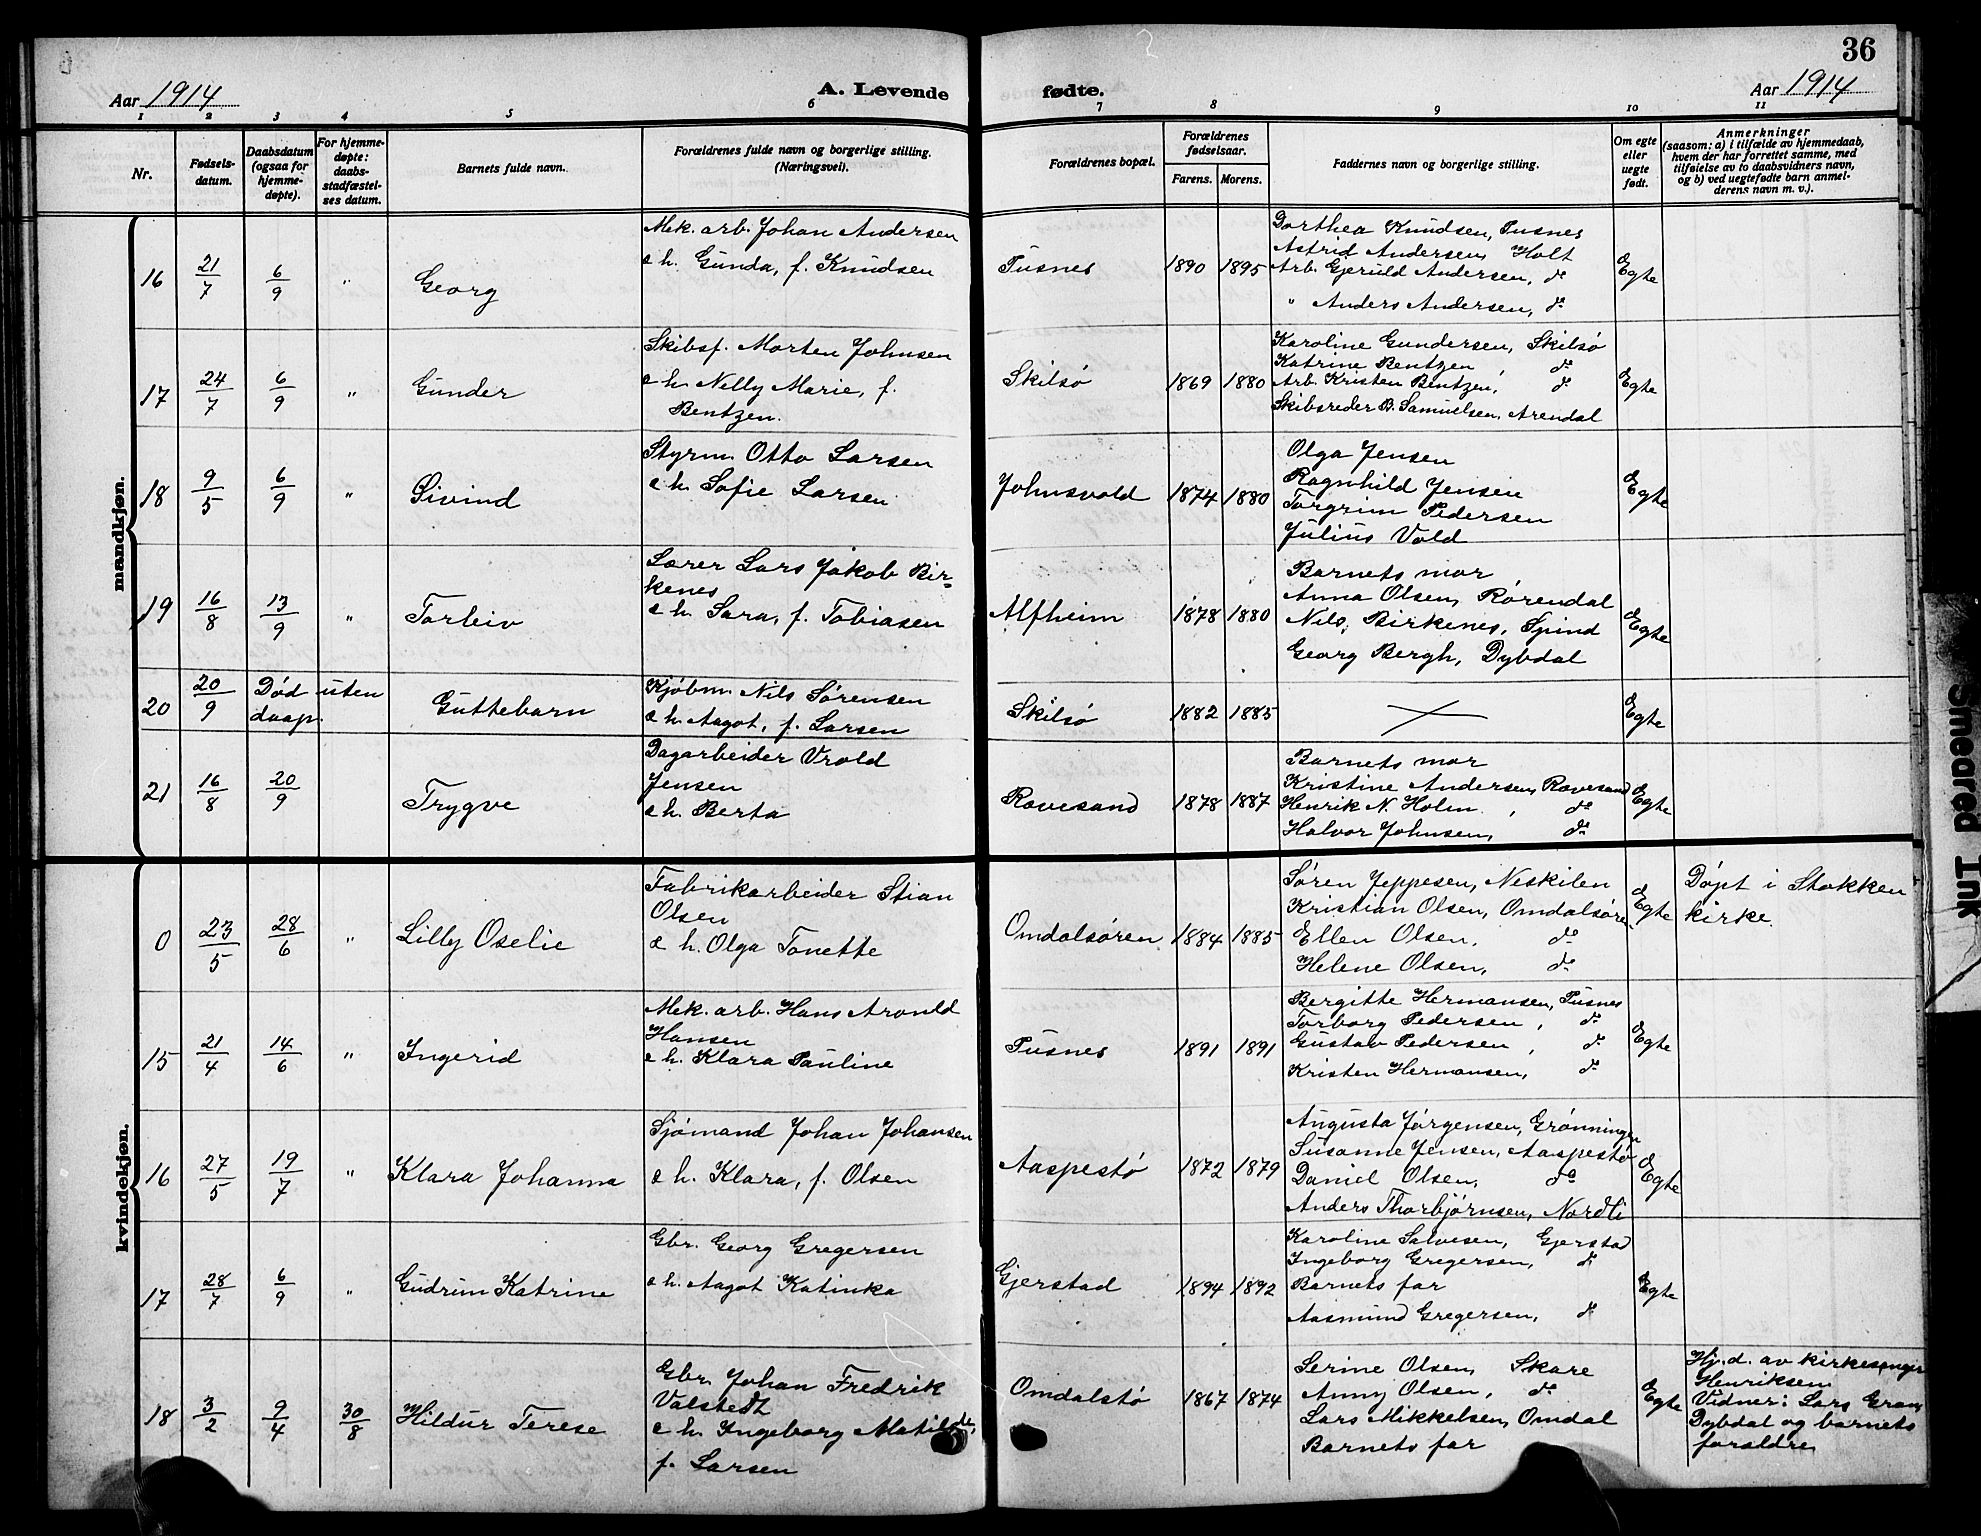 36
Aar 1914 A. Levende fødte. Aar 1914
1 2 3 4 5 6 7 8 9 10 11
Nr.
Fødsels-
datum.
Daabsdatum
(ogsaa for
hjemme-
døpte).
For hjemme-
døpte:
daabs-
stadfæstel-
ses datum.
Barnets fulde navn.
Forældrenes fulde navn og borgerlige stilling.
(Næringsvei).
Forældrenes bopæl.
Forældrenes
fødselsaar.
Farens. Morens.
Faddernes navn og borgerlige stilling.
Om egte
eller
uegte
født.
Anmerkninger
(saasom: a) i tilfælde av hjemmedaab,
hvem der har forrettet samme, med
tilføielse av to daabsvidners navn,
og b) ved uegtefødte barn anmel-
derens navn m. v.).
mandkjøn.
16 21/7 6/9 " Georg
Mek. arb. Johan Andersen
e h. Gunda, f. Knudsen
Pusnes 1890 1895
Dorthea Knudsen, Pusnes
Astrid Andersen, Holt
Arb. Gjeruld Andersen, do
" Anders Andersen, do
Egte
17 24/7 6/9 " Gunder
Skibsf. Morten Johnsen
e h. Nelly Marie, f.
Bentzen.
Skilsø 1869 1880
Karoline Gundersen, Skilsø
Katrine Bentzen, do
Arb. Kristen Bentzen, do
Skibsreder B. Samuelsen, Arendal
Egte
18 9/5 6/9 " Sivind
Styrm. Otto Larsen
e h. Sofie Larsen
Johnsvold 1874 1880
Olga Jensen
Ragnhild Jensen
Torgrim Pedersen
Julius Vold
Egte
19 16/8 13/9 " Torleiv
Lærer Lars Jakob Bir=
kenes
e h. Sara, f. Tobiasen
Alfheim 1878 1880
Barnets mor
Anna Olsen, Rørendal
Nils Birkenes, Spind
Georg Bergh, Dybdal
Egte
20 20/9 Død uten
daap. Guttebarn
Kjøbm. Nils Sørensen
e h. Aagot, f. Larsen
Skilsø 1882 1885
Egte
21 16/8 20/9 Trygve
Dagarbeider Vrold
Jensen
e h. Berta
Ravesand 1878 1887
Barnets mor
Kristine Andersen, Ravesand
Henrik N. Holm, do
Halvor Johnsen, do
Egte
kvindekjøn.
0 23/5 28/6 " Lilly Oselie
Fabrikarbeider Stian
Olsen
e h. Olga Tonette
Omdalsøren 1884 1885
Søren Jeppesen, Neskilen
Kristian Olsen, Omdalsøren
Ellen Olsen, do
Helene Olsen, do
Egte
Døpt i Stokken
kirke.
15 21/4 14/6 " Ingerid
Mek. arb. Hans Arnold
Hansen
e h. Klara Pauline
Pusnes 1891 1891
Bergitte Hermansen, Pusnes
Torborg Pedersen, do
Gustav Pedersen, do
Kristen Hermansen, do
Egte
16 27/5 19/7 " Klara Johanna
Sjømand Johan Johansen
e h. Klara, f. Olsen
Aaspestø 1872 1879
Augusta Jørgensen, Grønningen
Susanne Jensen, Aaspestø
Daniel Olsen, do
Anders Thorbjørnsen, Nordli
Egte
17 28/7 6/9 " Gudrun Katrine
Gbr. Georg Gregersen
e h. Aagot Katinka
Gjerstad 1894 1892
Karoline Salvesen, Gjerstad
Ingeborg Gregersen, do
Barnets far
Aasmund Gregersen, do
Egte
18 3/2 9/4 30/8 Hildur Terese
Gbr. Johan Fredrik
Valstedt
e h. Ingeborg Matilde,
f. Larsen
Omdalstø 1867 1874
Serine Olsen, Skare
Anny Olsen, do
Lars Mikkelsen, Omdal
Barnets far
Egte
Hj.d. av kirkesanger
Henriksen
Vidner: Lars Gran,
Dybdal og barnets
forældre
Smeared Ink